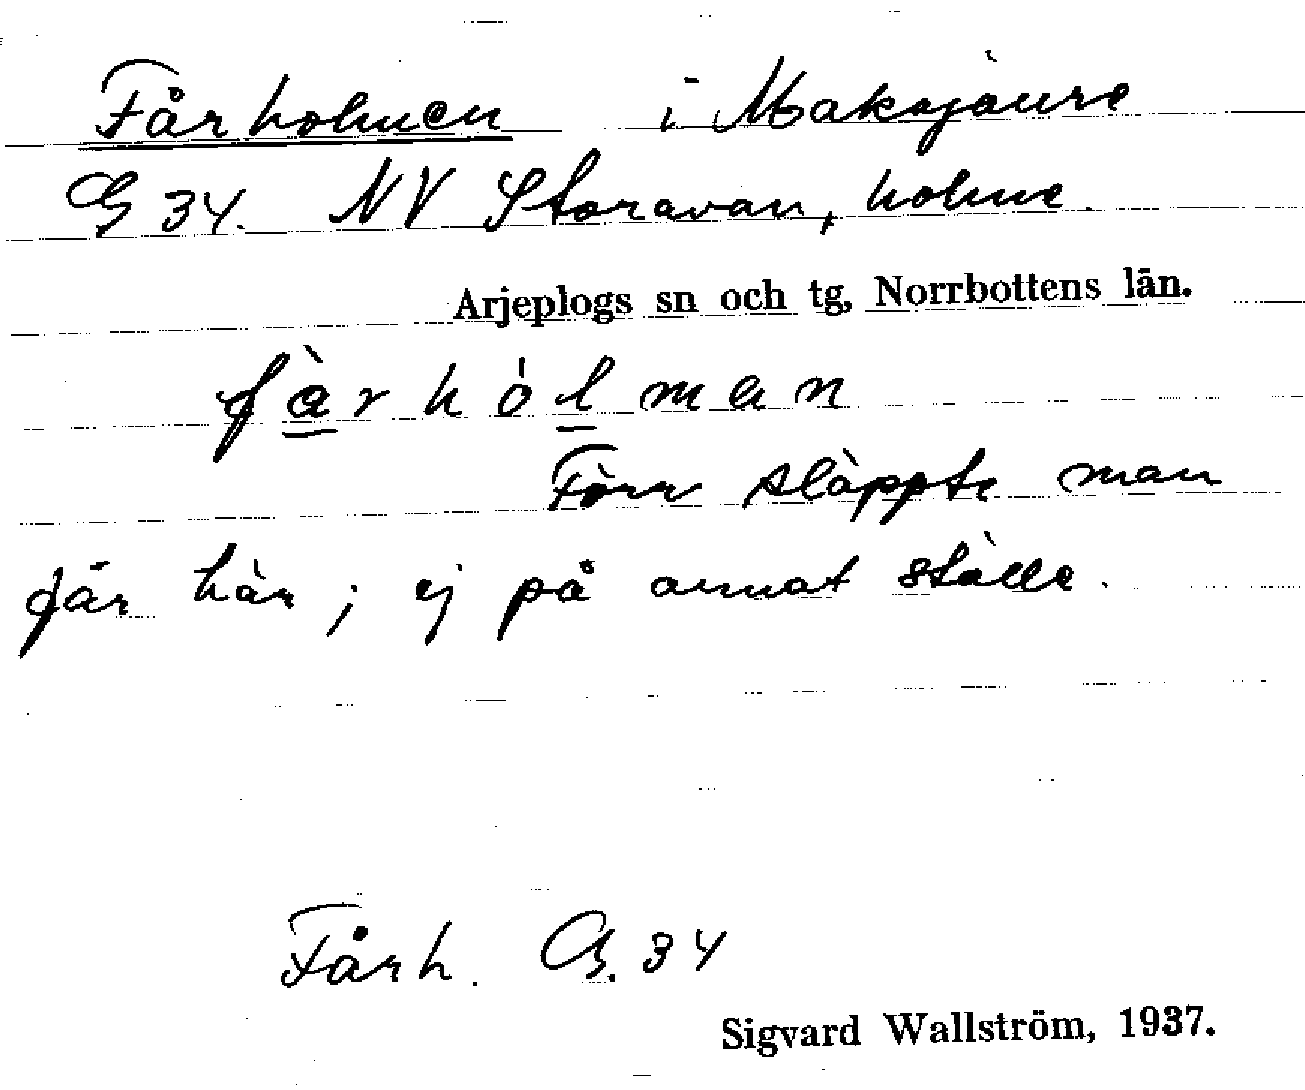 Fårholmen i Maksjaure
G 34. NV Storavan, holme.
Arjeplogs sn och tg, Norrbottens län.
fàrhólman
Förr släppte man
får här; ej på annat ställe.
Fårh. G. 34
Sigvard Wallström, 1937.